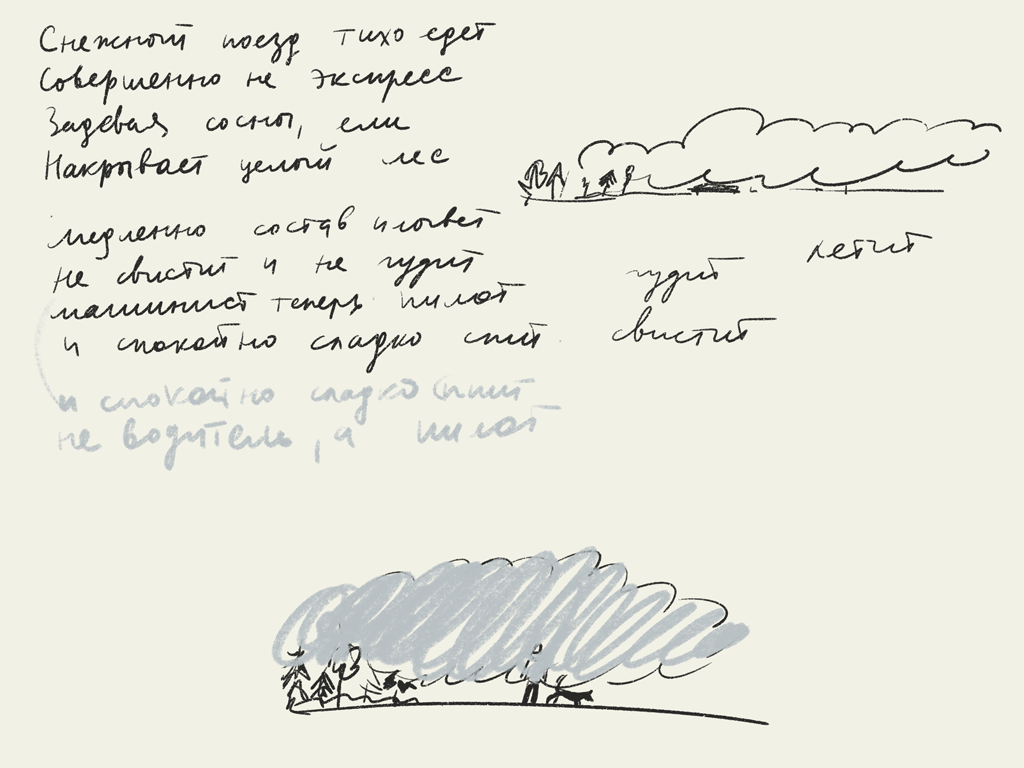 Снежный поезд тихо едет
Совершенно не экспресс
Задевая сосны, ели
Накрывает целый лес
медленно состав плывет
не свистит и не гудит
машинист теперь пилот
и спокойно сладко спит
гудит
летит
свистит
и спокойно сладко спит
не водитель, а пилот